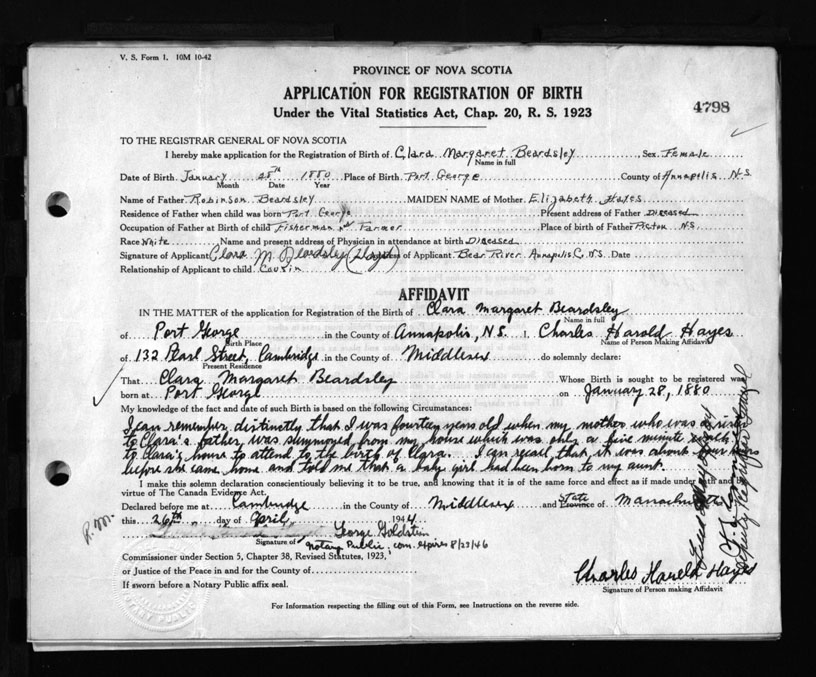 V. S. Form 1. 10M 10-42
PROVINCE OF NOVA SCOTIA
APPLICATION FOR REGISTRATION OF BIRTH
Under the Vital Statistics Act, Chap. 20, R. S. 1923
4798
TO THE REGISTRAR GENERAL OF NOVA SCOTIA
I hereby make application for the Registration of Birth of Clara Margaret Beardsley Sex Female
Name in full
Date of Birth January 28th 1880 Place of Birth Port George County of Annapolis N.S.
Month Date Year
Name of Father Robinson Beardsley MAIDEN NAME of Mother Elizabeth Hayes
Residence of Father when child was born Port George Present address of Father Diseased
Occupation of Father at Birth of child Fisherman and Farmer Place of birth of Father Picton N.S.
Race White Name and present address of Physician in attendance at birth Diseased
Signature of Applicant Clara M Beardsley of Applicant Bear River Annapolis C. N.S. Date
Relationship of Applicant to child Cousin
AFFIDAVIT
IN THE MATTER of the application for Registration of the Birth of Clara Margaret Beardsley
Name in full
of Port George in the County of Annapolis, N.S. I, Charles Harold Hayes
Birth Place Name of Person Making Affidavit
of 132 Pearl Street, Cambridge in the County of Middlesex do solemnly declare:
Present Residence
That Clara Margaret Beardsley Whose Birth is sought to be registered was
born at Port George on January 28, 1880
My knowledge of the fact and date of such Birth is based on the following Circumstances:
I can remember distinctly that I was fourteen years old when my mother who was a sister
to Clara's father, was summoned from my house which was only a five minute walk
to Clara's house to attend to the birth of Clara. I can recall that it was about four hours
before she came home and told me that a baby girl had been born to my aunt.
I make this solemn declaration conscientiously believing it to be true, and knowing that it is of the same force and effect as if made under oath and by
virtue of The Canada Evidence Act.
Declared before me at Cambridge in the County of Middlesex and State Province of Massachusetts
this 26th day of April 1944
George Goldstein
Signature of Notary Public, com. expires 8/23/46
Commissioner under Section 5, Chapter 38, Revised Statutes, 1923,
or Justice of the Peace in and for the County of
If sworn before a Notary Public affix seal.
Charles Harold Hayes
Signature of Person making Affidavit
For Information respecting the filling out of this Form, see Instructions on the reverse side.
R.M.